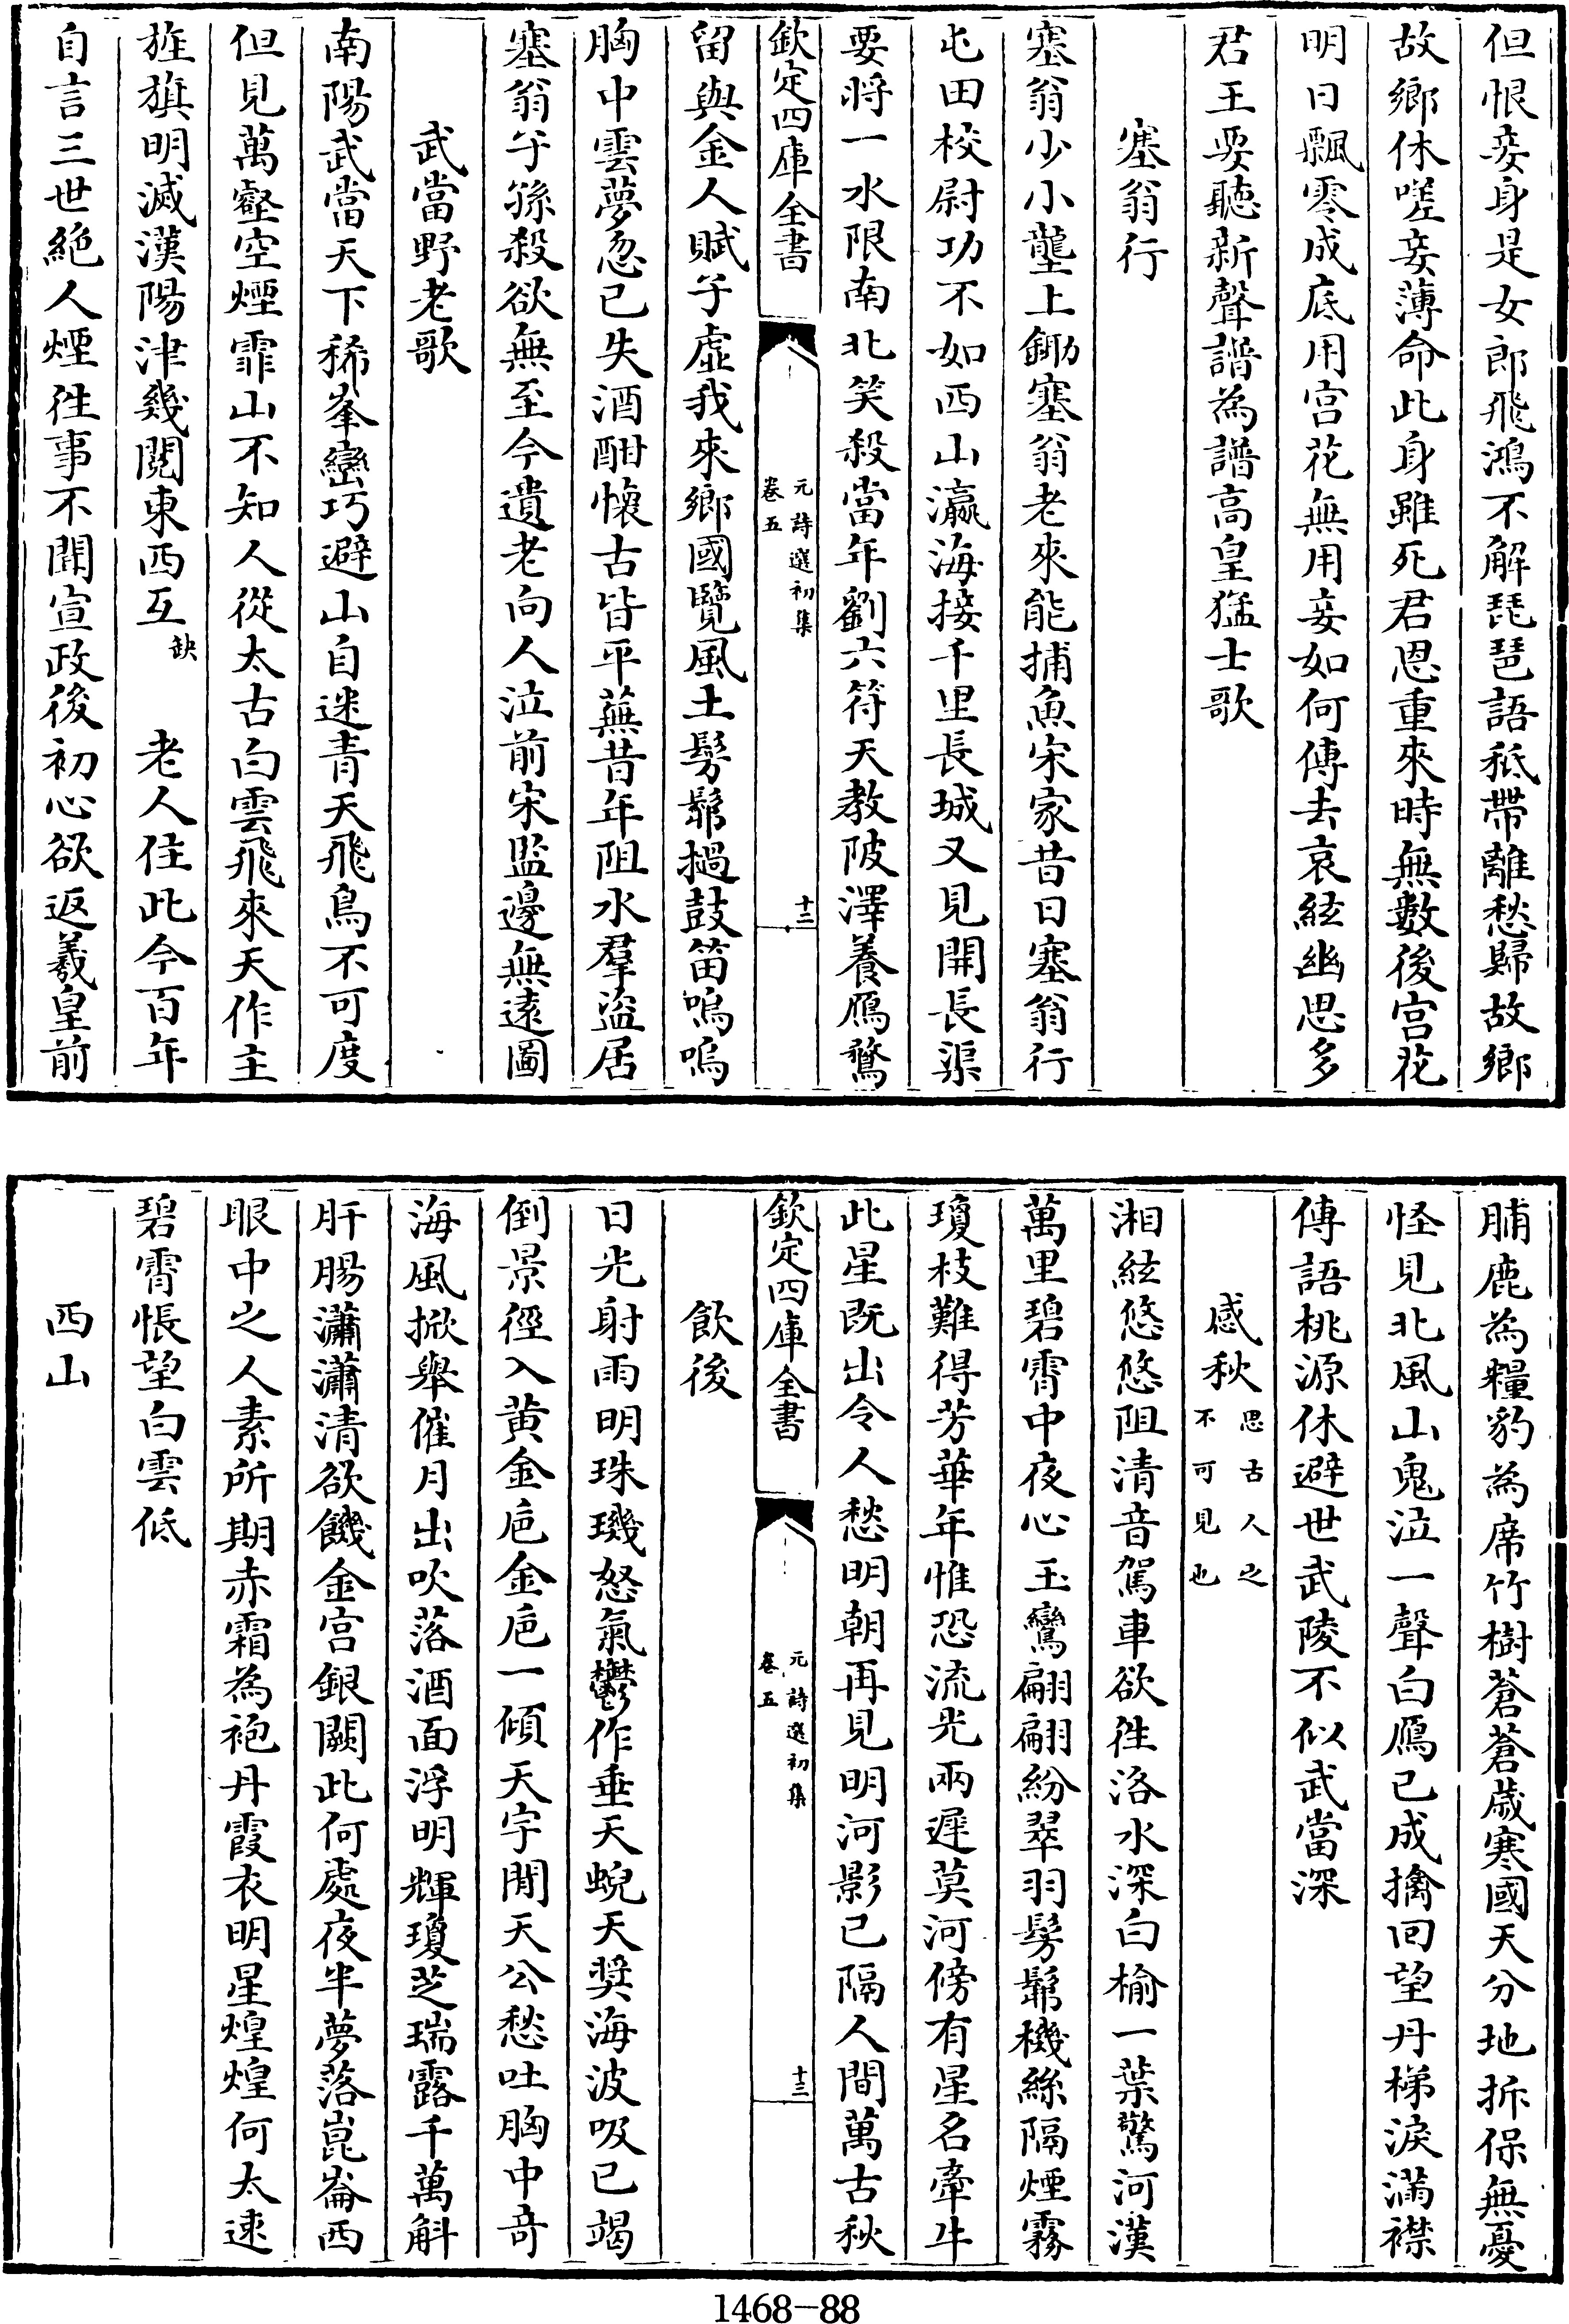 但恨妾身是女郎飛鴻不解琵琶語秪帶離愁歸故鄉
故鄉休嗟妾薄命此身雖死君恩重來時無數後宫花
明日飄零成底用宫花無用妾如何傳去哀絃幽思多
君王要聽新聲譜為譜高皇猛士歌
塞翁行
塞翁少小壟上鋤塞翁老來能捕魚宋家昔日塞翁行
屯田校尉功不如西山瀛海接千里長城又見開長渠
要將一水限南北笑殺當年劉六符天教陂澤養鴈鶩
欽定四庫全書
元詩選初集
卷五
十二
留與金人賦子虛我來鄉國覽風土髣髴撾鼓笛嗚嗚
胸中雲夢忽已失酒酣懷古皆平蕪昔年阻水羣盜居
塞翁子孫殺欲無至今遺老向人泣前宋監邊無遠圖
武當野老歌
南陽武當天下稀峯巒巧避山自迷青天飛鳥不可度
但見萬壑空煙霏山不知人從太古白雲飛來天作主
旌旗明滅漢陽津幾閲東西互缺 老人住此今百年
自言三世絶人煙往事不聞宣政後初心欲返羲皇前
脯鹿為糧豹為席竹樹蒼蒼歲寒國天分地拆保無憂
怪見北風山鬼泣一聲白鴈已成擒回望丹梯淚滿襟
傳語桃源休避世武陵不似武當深
感秋思古人之不可見也
湘絃悠悠阻清音駕車欲往洛水深白榆一葉驚河漢
萬里碧霄中夜心玉鸞翩翩紛翠羽髣髴機絲隔煙霧
瓊枝難得芳華年惟恐流光兩遲莫河傍有星名牽牛
此星既出令人愁明朝再見明河影已隔人間萬古秋
欽定四庫全書
元詩選初集
卷五
十三
飲後
日光射雨明珠璣怒氣鬱作垂天蜺天奬海波吸已竭
倒景徑入黄金巵金巵一傾天宇閒天公愁吐胸中奇
海風掀舉催月出吹落酒面浮明輝瓊芝瑞露千萬斛
肝腸瀟瀟清欲饑金宫銀闕此何處夜半夢落崑崙西
眼中之人素所期赤霜為袍丹霞衣明星煌煌何太速
碧霄悵望白雲低
西山
1468-88